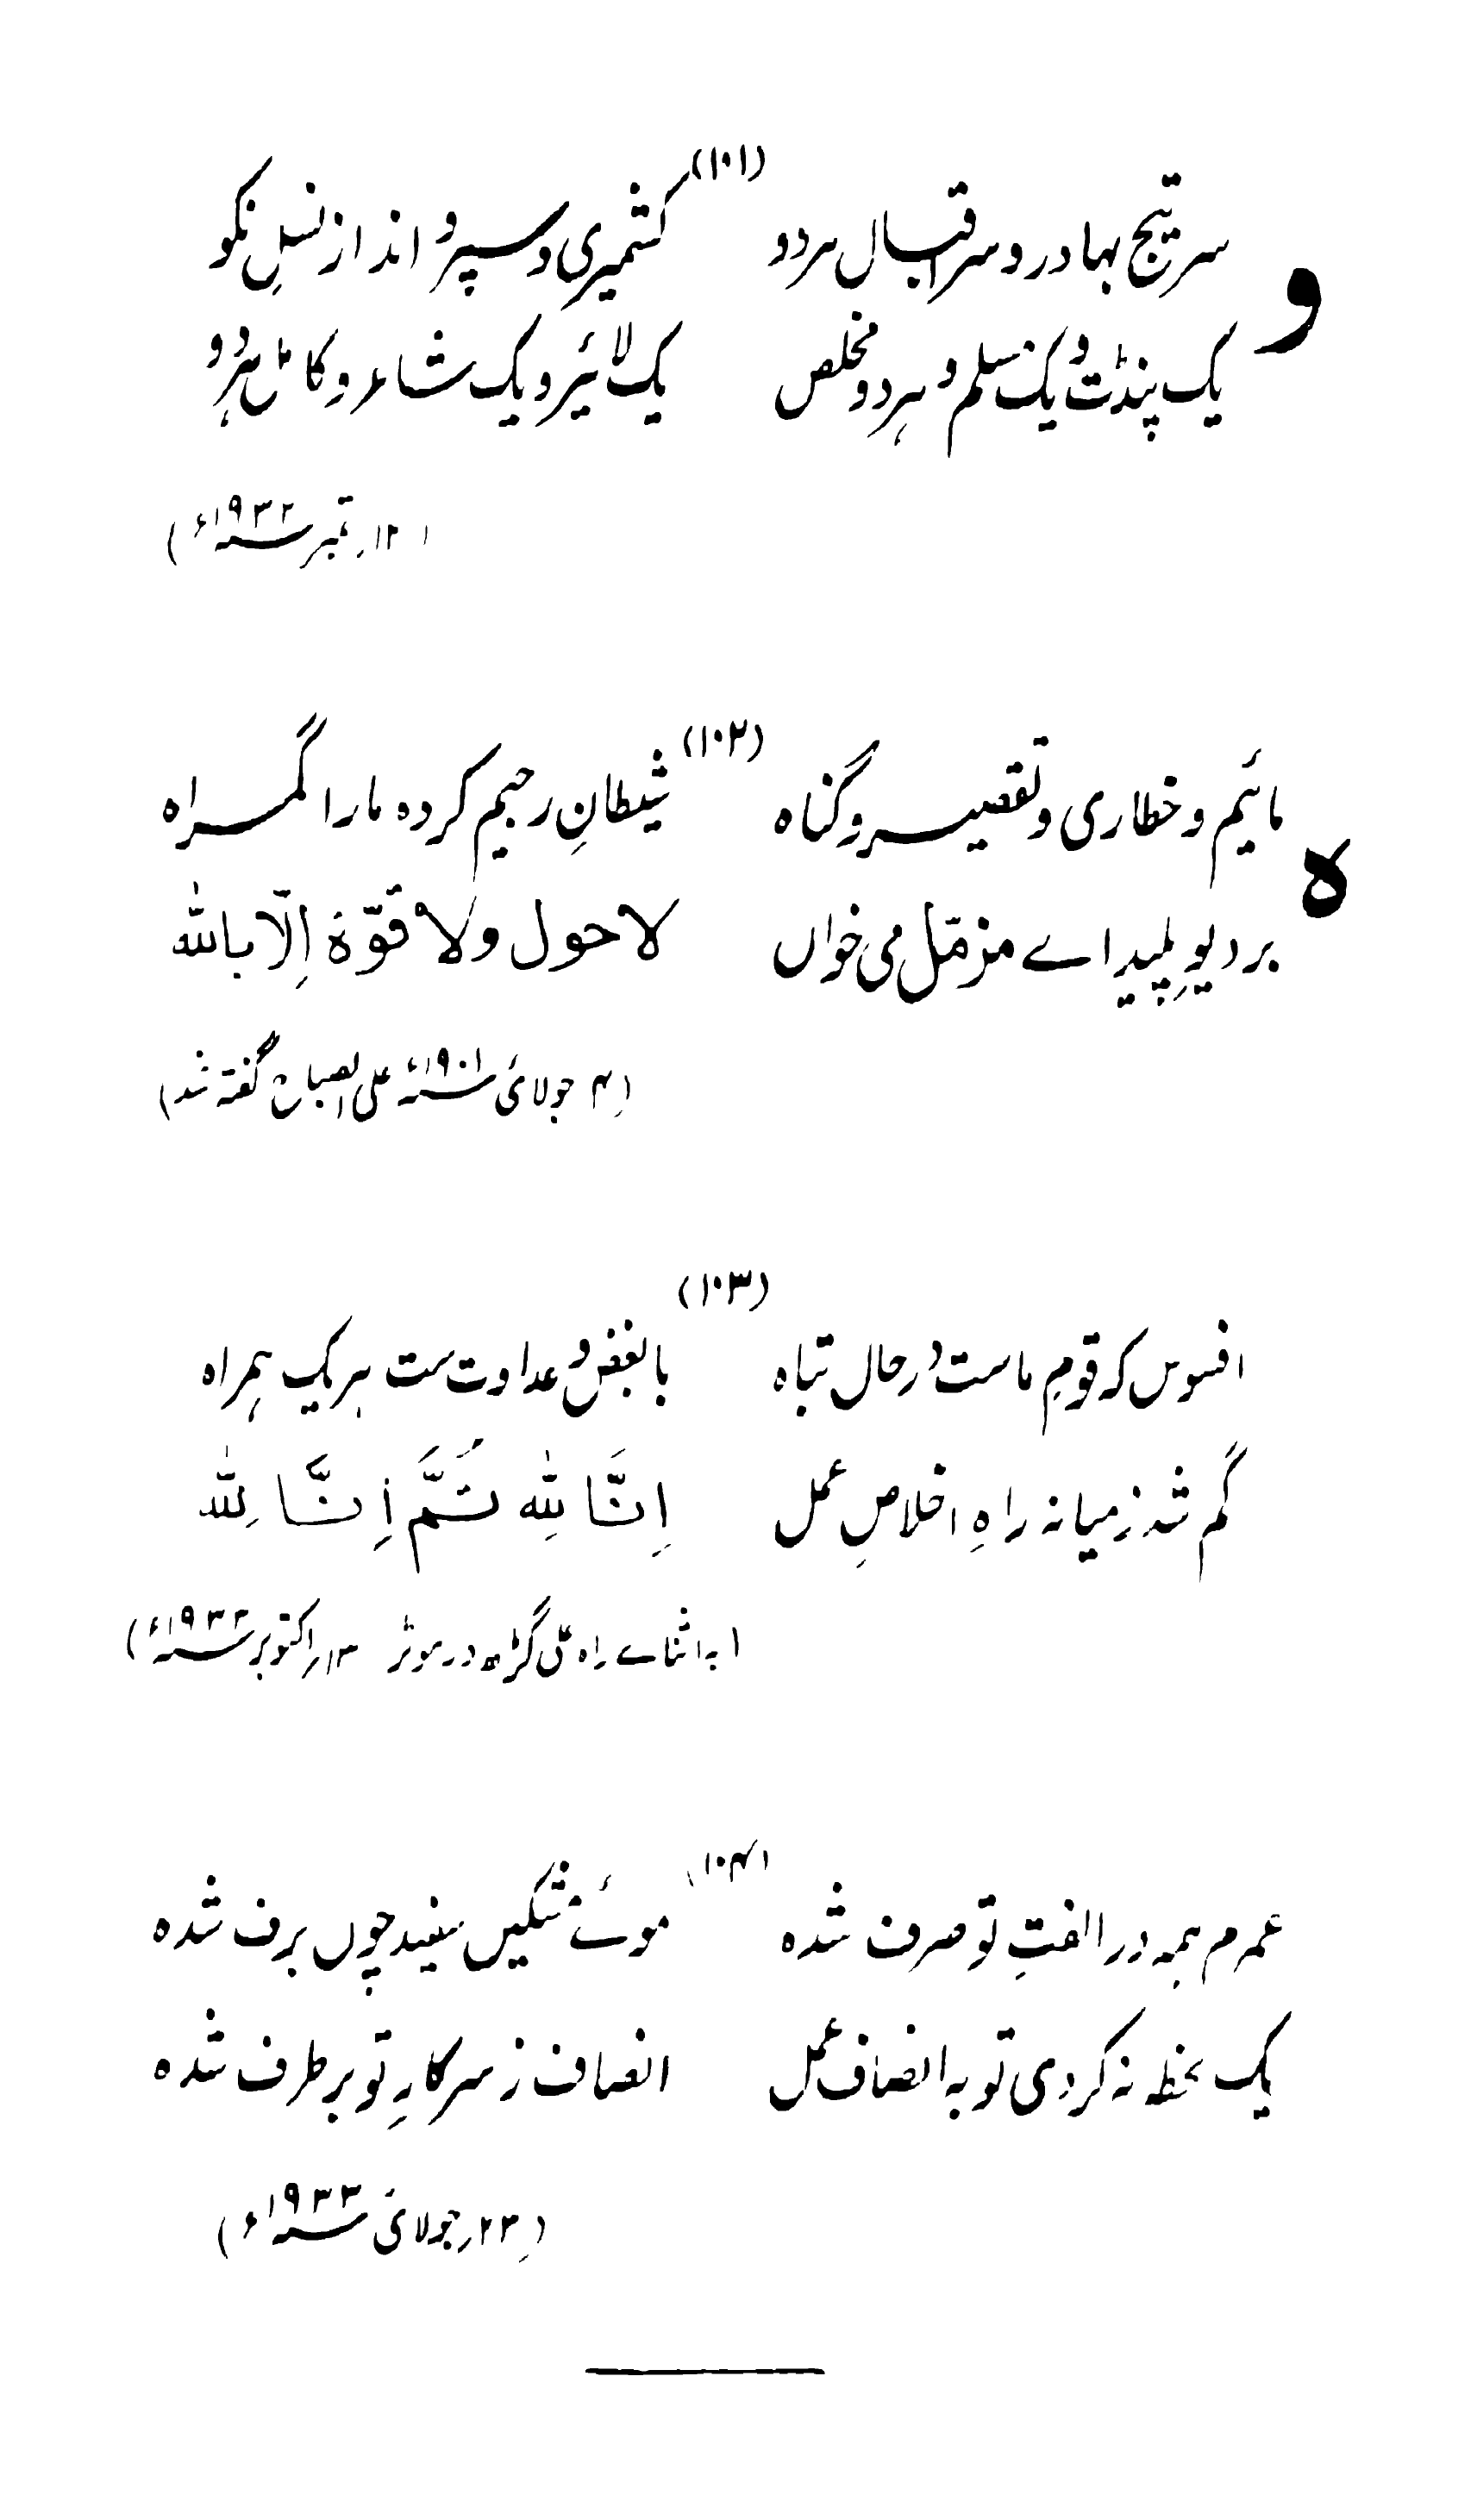 (۱۰۱)
و
سر تیج بہادر و سر اقبال ہر دو
کشمیری و سپرو اند از نسلِ نکو
یک پنڈت یک مسلم ہر دو مخلص
یک لائیر و یک شاعرِ کامل ہر دو
ستمبر ۱۹۳۲ء)
(۱۰۲)
ہ
مائیم و خطاری و تقصیر و گناہ
شیطانِ رجیم کردہ ما را گمراہ
بر دیو پلید اے مزمّل می خواں
لا حول ولا قوّۃ اِلّا باللّٰہ
(۴ جولائی ۱۹۰۱ء علی الصباح گفتہ شد)
(۱۰۳)
افسوس کہ قومِ ماست در حال تباہ
با بغض و عداوت ست ہر یک ہمراہ
گم شد ز میانہ راہِ اخلاصِ عمل
اِنَّا لِلّٰہ ثُمَّ اِنَّا لِلّٰہ
(بہ اثنائے راہ در موٹر اکتوبر ۱۹۳۲ء)
(۱۰۴)
عمرم ہمہ در الفتِ تو صرف شدہ
موئے مشکیں سفید چوں برف شدہ
یک لحظہ نہ کردی تو بہ انصاف عمل
انصاف ز سرکارِ تو برطرف شدہ
(۲۲ جولائی ۱۹۳۳ء)